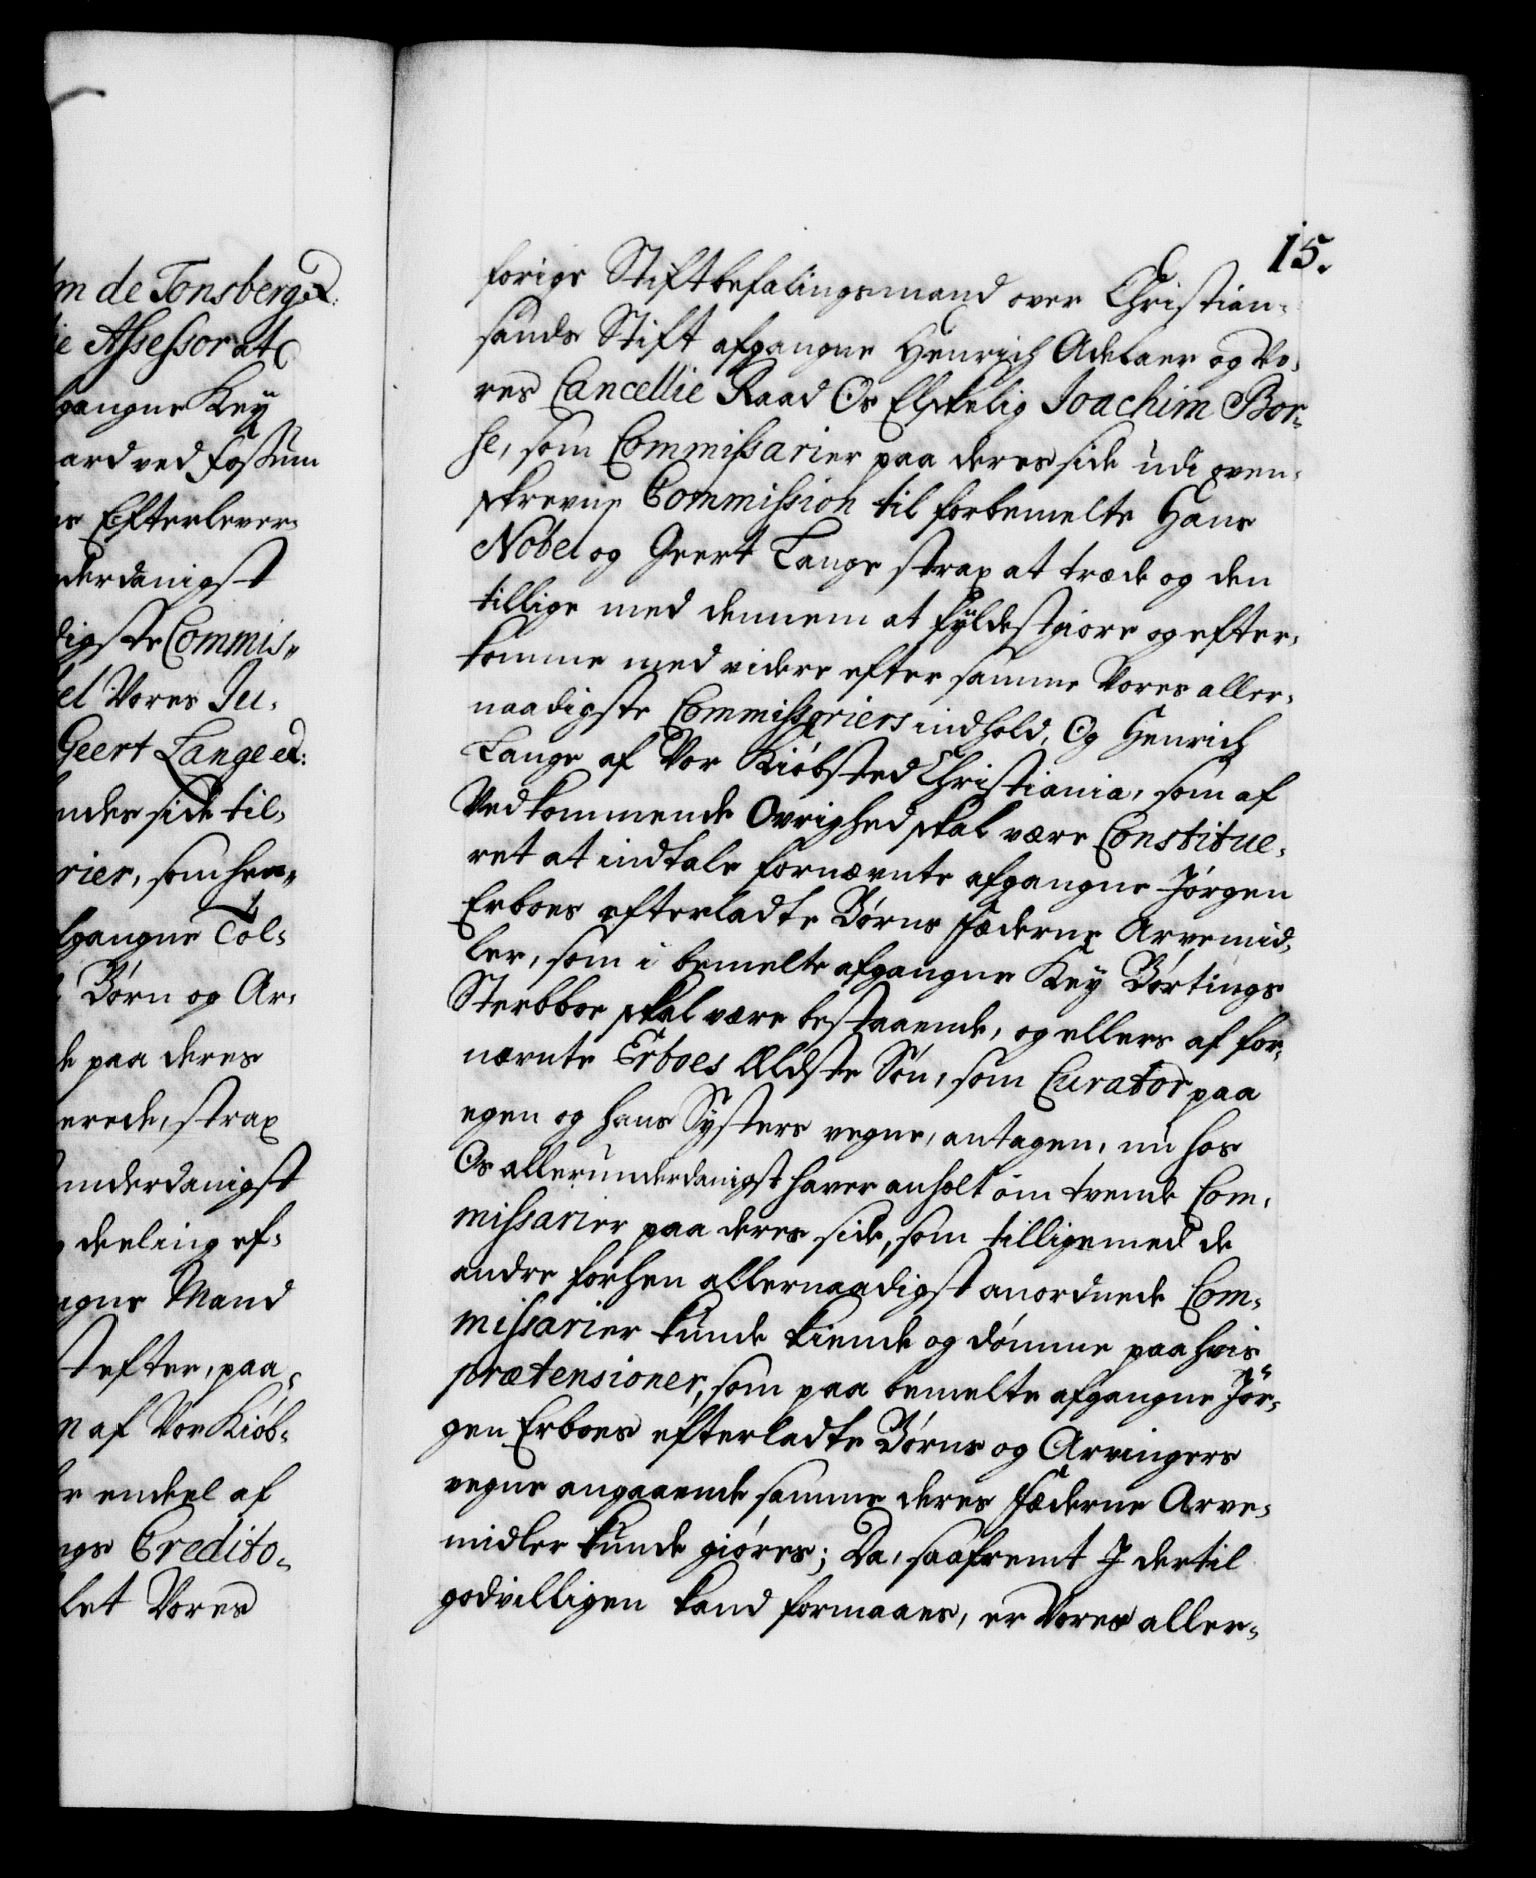 m de Tonsberg et
ie Assessorat
fgangne Key
aard ved Fossum
Efterlever-
derdanigst
digste Commis-
el Vores Ju-
Geert Lange et
ndes side til-
rier, som hen-
fgangne Tol-
Børn og Ar-
de paa deres
erede, strax
underdanigst
deeling ef-
Mand
efter, paa-
af Vor Kiøb-
endeel af
ngs Credito-
let Vores
15.
forige Stiftbefalingsmand over Christian-
sands Stift afgangne Henrich Adelaer og Vo-
res Cancellie Raad Os Elskelig Joachim Bor-
se, som Commissarier paa deres side udi oven-
skrevne Commission til forbemelte Hans
Nobel og Geert Lange strax at træde og den
tillige med dennem at fyldestgiøre og efter-
komme med videre efter samme Vores aller-
naadigste Commissoriers indhold, Og Henrich
Lange af Vor Kiøbsted Christiania, som af
Vedkommende Øvrighed skal være Constitue-
ret at indtale fornævnte afgangne Jørgen
Erboes efterladte Børns Fæderne Arvemid-
ler, som i bemelte afgangne Key Børtings
Sterbboe skal være bestaaende, og ellers af for-
nævnte Erboes Ældste Søn, som Curator paa
egen og hans Systers vegne, antagen, nu hos
Os allerunderdanigst haver anholt om tvende Com-
missarier paa deres side, som tilligemed de
andre forhen allernaadigst anordnede Com-
missarier kunde kiende og dømme paa hvis
prætensioner, som paa bemelte afgangne Jør-
gen Erboes efterladte Børns og Arvingers
vegne angaaende samme deres Fæderne Arve-
midler kunde giøres; Da, saafremt I dertil
godvilligen kand formaaes, er Vores aller-